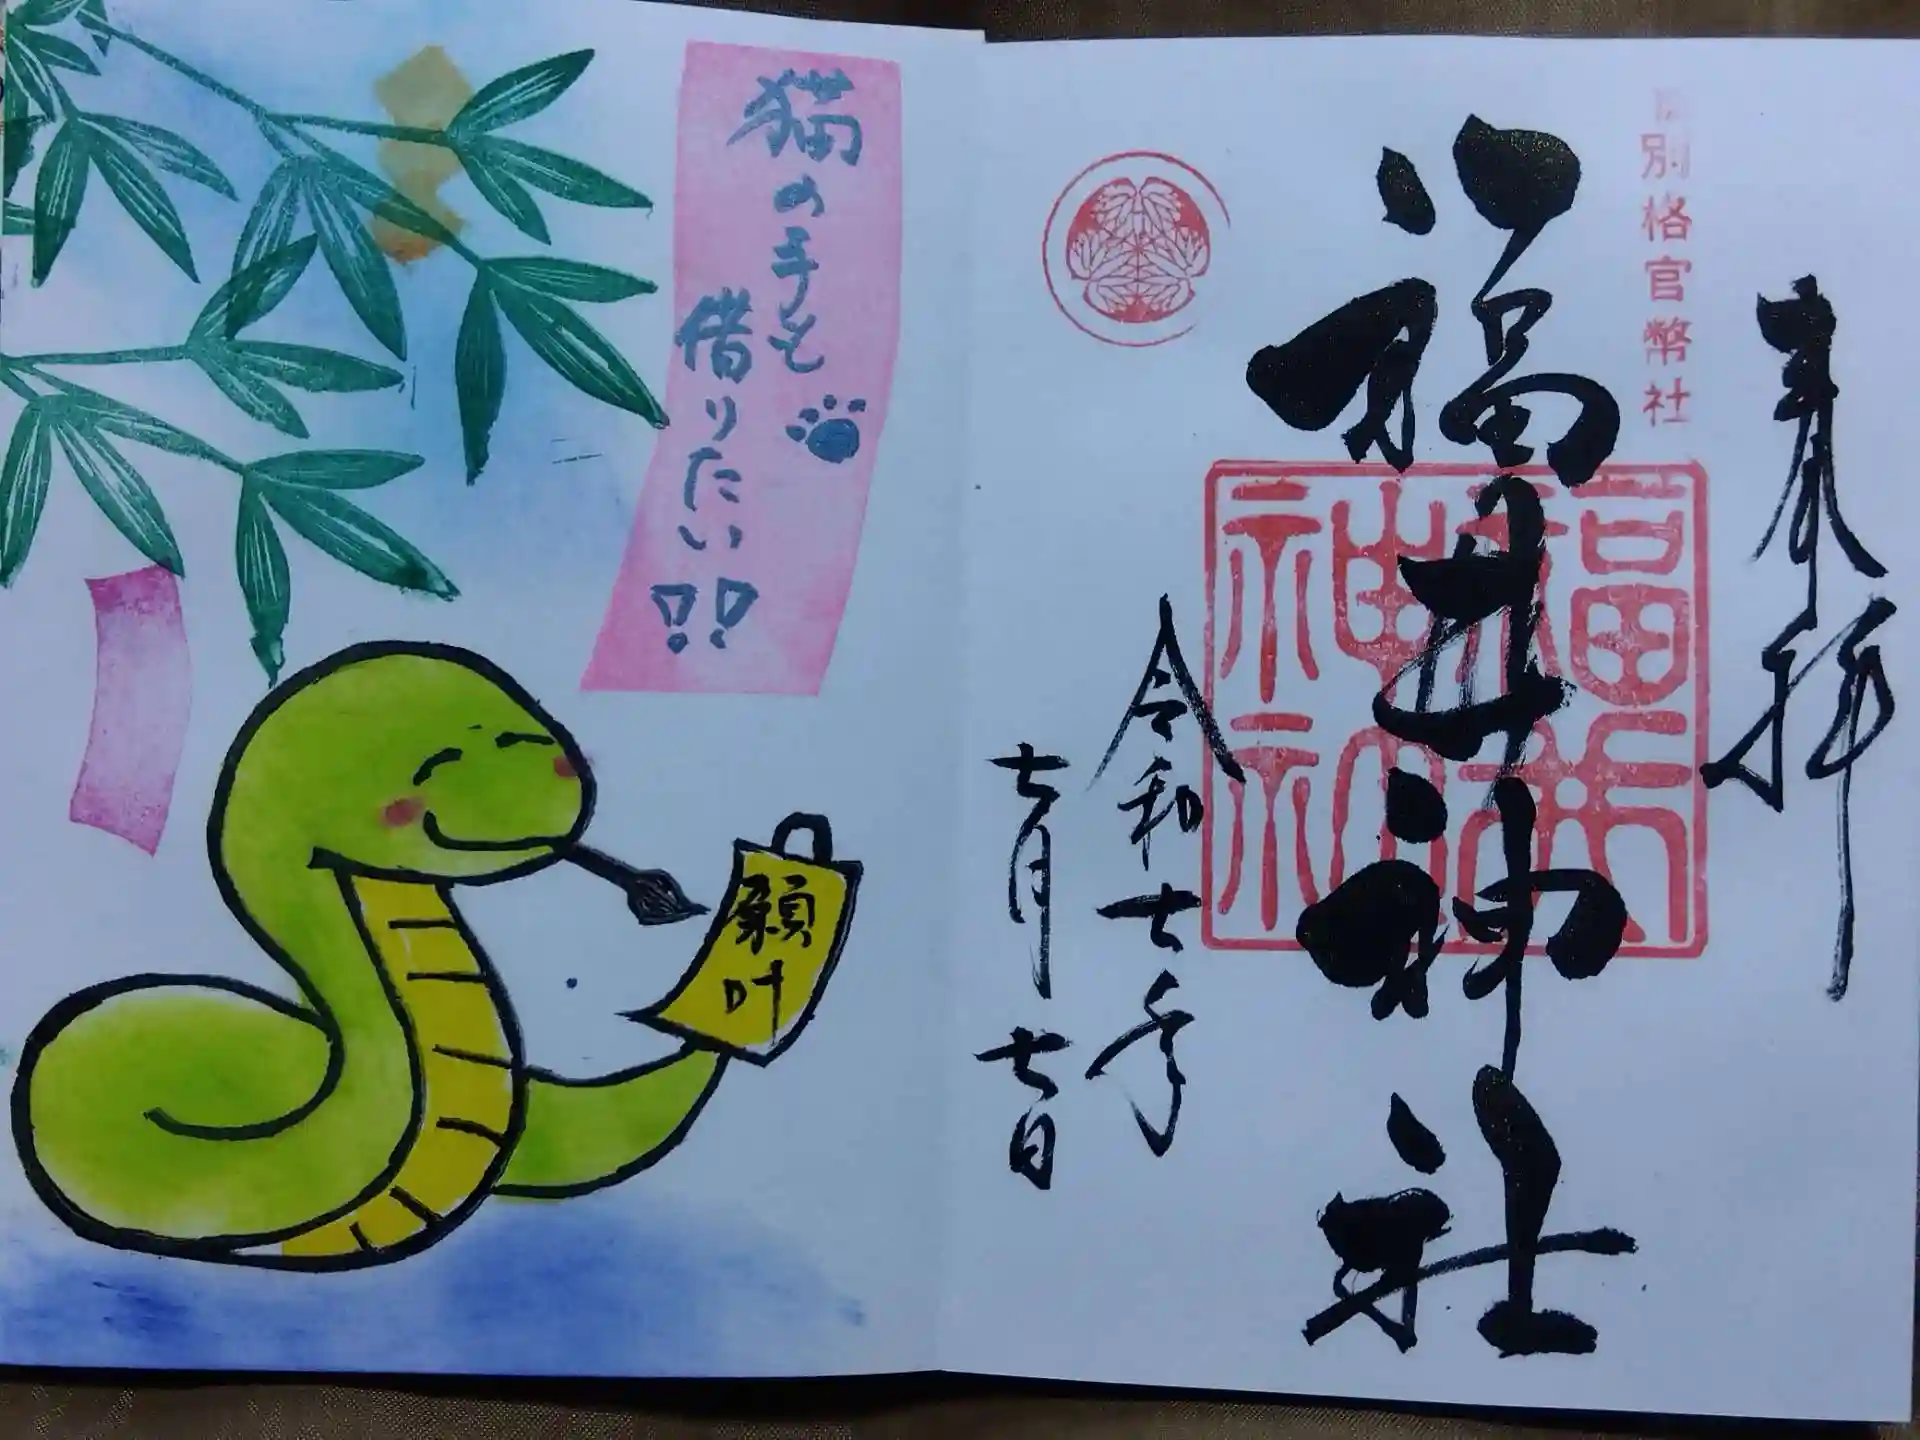 奉拝
別格官幣社
福井神社
福井神社
令和七年
七月七日
猫の手も
借りたい!!
願
叶